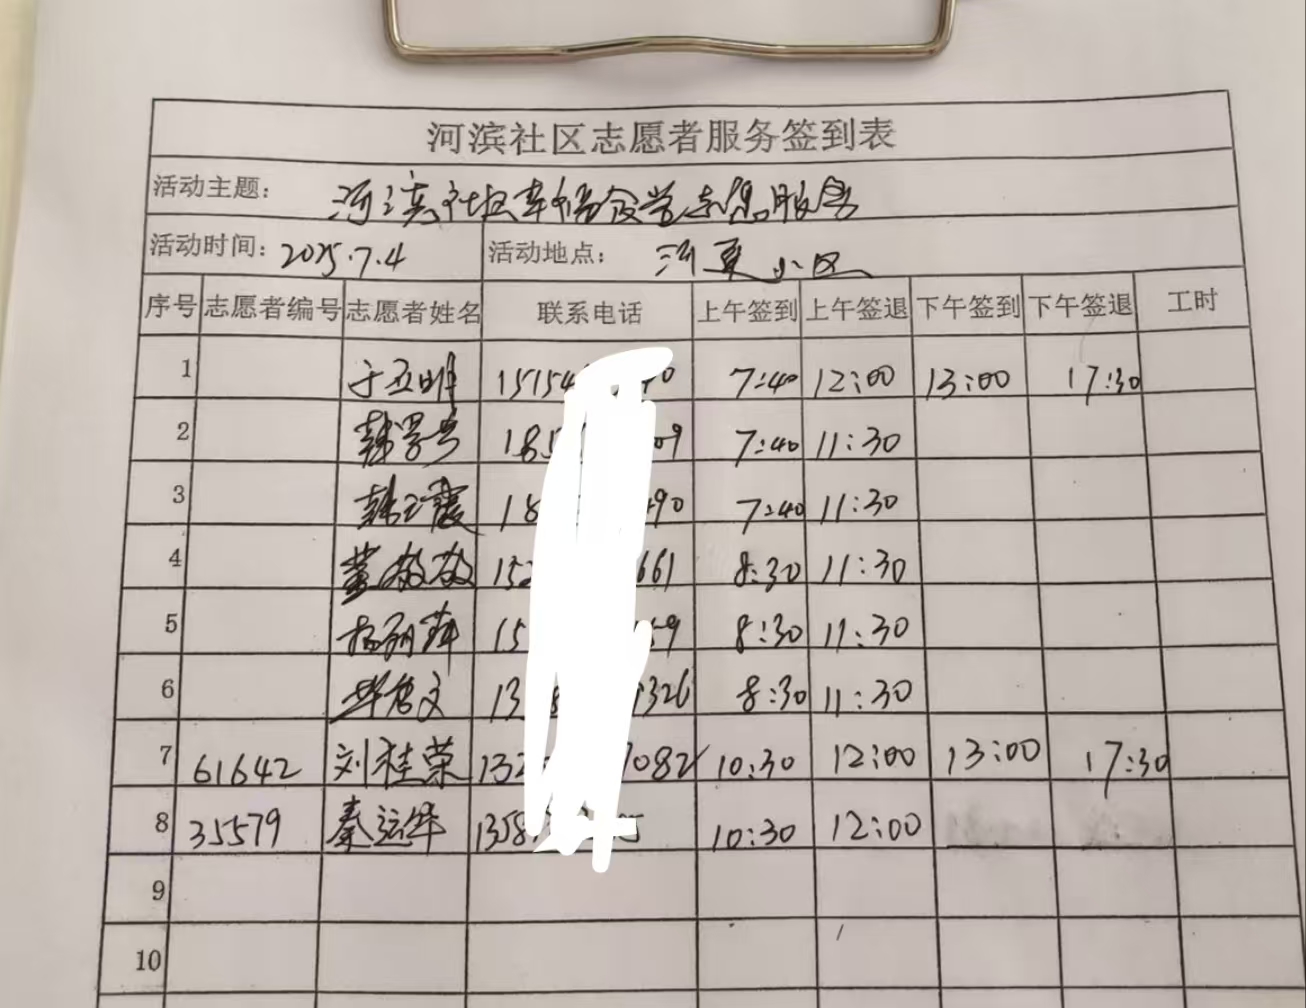 河滨社区志愿者服务签到表
活动主题: 河滨社区幸福食堂志愿服务
活动时间: 2025.7.4 活动地点: 河夏小区
序号 志愿者编号 志愿者姓名 联系电话 上午签到 上午签退 下午签到 下午签退 工时
1 于亚明 15154 40 7:40 12:00 13:00 17:30
2 185 09 7:40 11:30
3 18 490 7:40 11:30
4 董敬敬 152 661 8:30 11:30
5 杨丽萍 15 59 8:30 11:30
6 13 1326 8:30 11:30
7 61642 刘桂荣 132 7082 10:30 12:00 13:00 17:30
8 35579 秦运华 1358 10:30 12:00
9
10